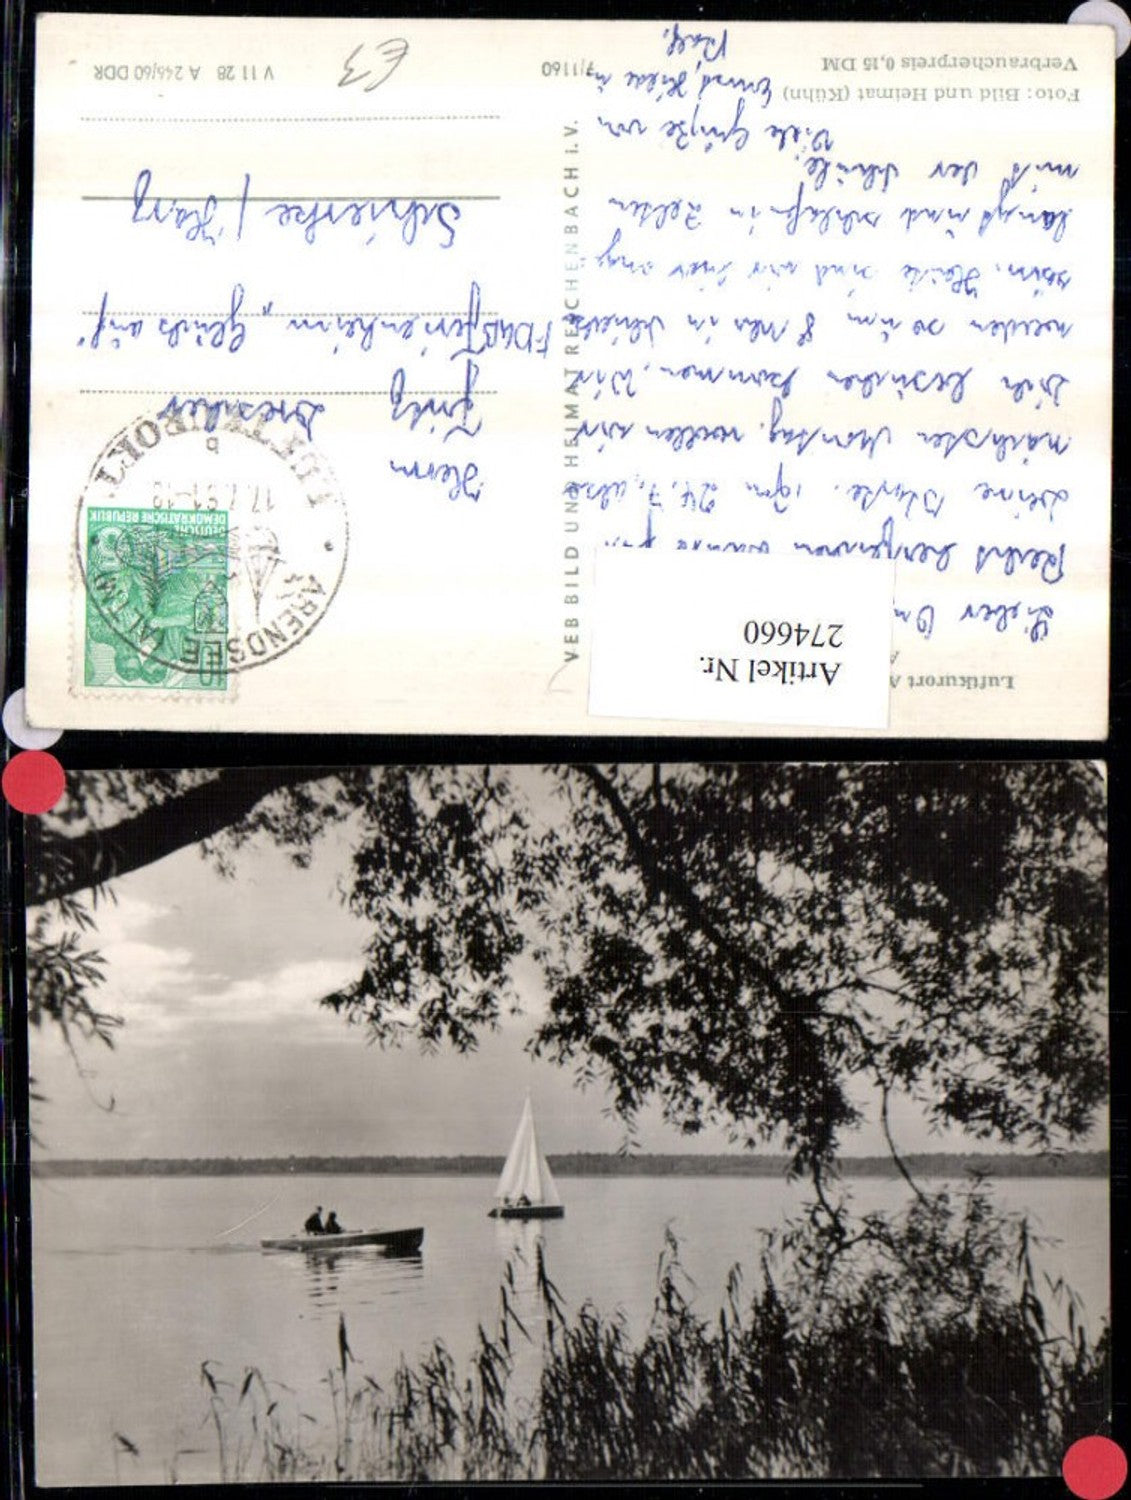 Luftkurort A
Artikel Nr.
274660
Lieber
Recht herzlichen
Deine Karte. Am 24. 7., also
nächsten Montag, wollen wir
Dich besuchen kommen. Wir
werden so um 8 Uhr in Schierke
sein. Heute sind wir hier ange-
langt und schlafen in Zelten
mit der Schule.
Viele Grüße von
Ralf.
Foto: Bild und Heimat (Kühn)
Verbraucherpreis 0,15 DM
7/1160
VEB BILD UND HEIMAT REICHENBACH I. V.
DEUTSCHE
DEMOKRATISCHE REPUBLIK
10
ARENDSEE (ALTM)
LUFTKURORT
b
Herrn
Fritz Dressler
FDGB Ferienheim „Glück auf"
Schierke / Harz
V 11 28 A 246/60 DDR
E3